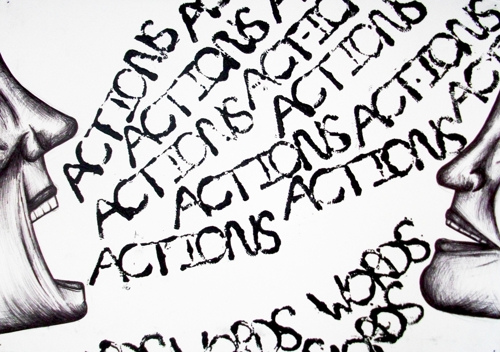 ACTIONS ACTIONS
ACTIONS ACTIONS
ACTIONS ACTIONS ACTIONS
ACTIONS ACTIONS
ACTIONS
WORDS WORDS
WORDS